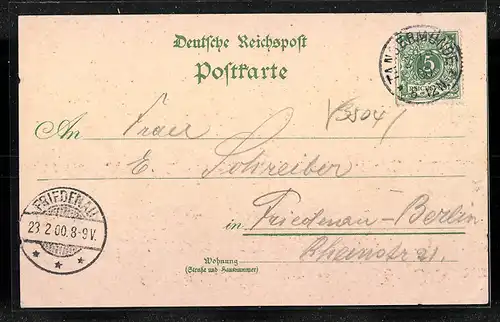 Deutsche Reichspost
Postkarte
TANGERMÜNDE
5
(3504)
An Frau
E. Schreiber
FRIEDENAU
23 2 00. 8-9 V.
* * *
in Friedenau-Berlin
Rheinstr 21.
Wohnung
(Straße und Hausnummer)